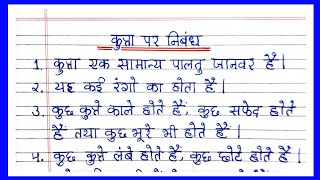 कुत्ता पर निबंध
१. कुत्ता एक सामान्य पालतु जानवर है।
२. यह कई रंगो का होता है।
३. कुछ कुत्ते काले होते हैं, कुछ सफेद होते
हैं तथा कुछ भूरे भी होते हैं।
४. कुछ कुत्ते लंबे होते हैं, कुछ छोटे होते हैं।